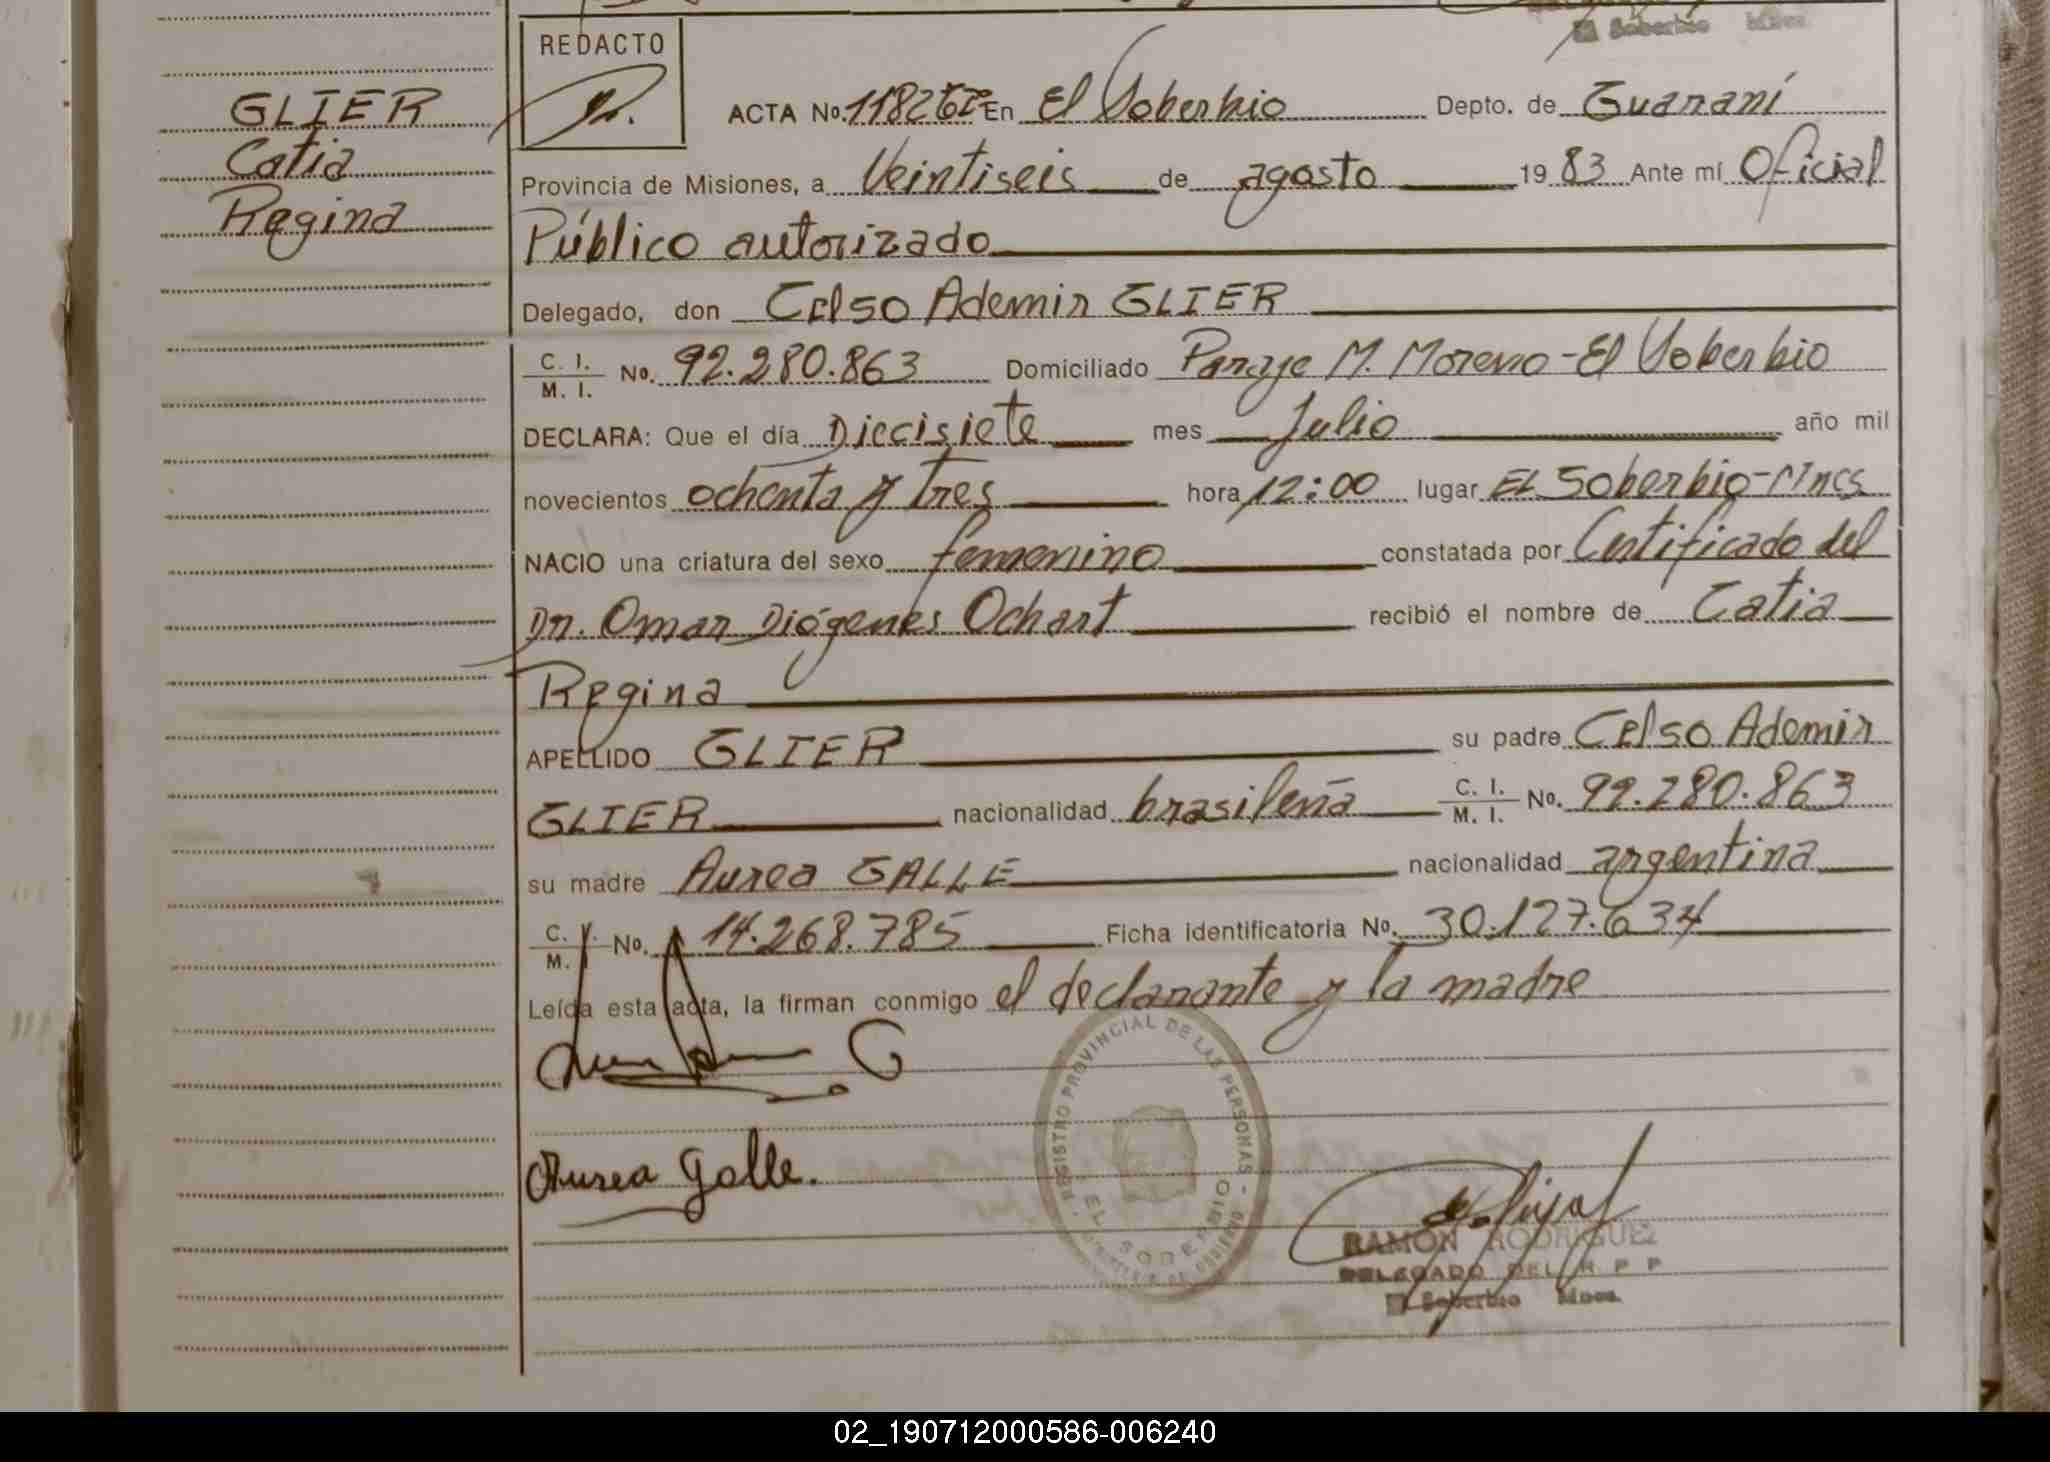 El Soberbio Mnes.
REDACTO
GLIER
Catia
Regina
ACTA No. En El Soberbio Depto. de Guaraní
Provincia de Misiones, a Veintiseis de agosto 1983 Ante mí Oficial
Público autorizado
Delegado, don Celso Ademir GLIER
C. I. M. I. No. 92.280.863 Domiciliado Paraje M. Moreno - El Soberbio
DECLARA: Que el día Diecisiete mes Julio año mil
novecientos ochenta y tres hora 12:00 lugar EL Soberbio-Mnes
NACIO una criatura del sexo femenino constatada por Certificado del
Dr. Omar Diógenes Ochart recibió el nombre de Catia
Regina
APELLIDO GLIER su padre Celso Ademir
GLIER nacionalidad brasileña C. I. M. I. No. 92.280.863
su madre Aurea GALLE nacionalidad argentina
C. I. M. I. No. 14.268.785 Ficha identificatoria No. 30.127.634
Leída esta acta, la firman conmigo el declarante y la madre
REGISTRO PROVINCIAL DE LAS PERSONAS -
EL SOBERBIO
Aurea Galle.
RAMON RODRIGUEZ
DELEGADO DEL R P P
El Soberbio Mnes.
02_190712000586-006240